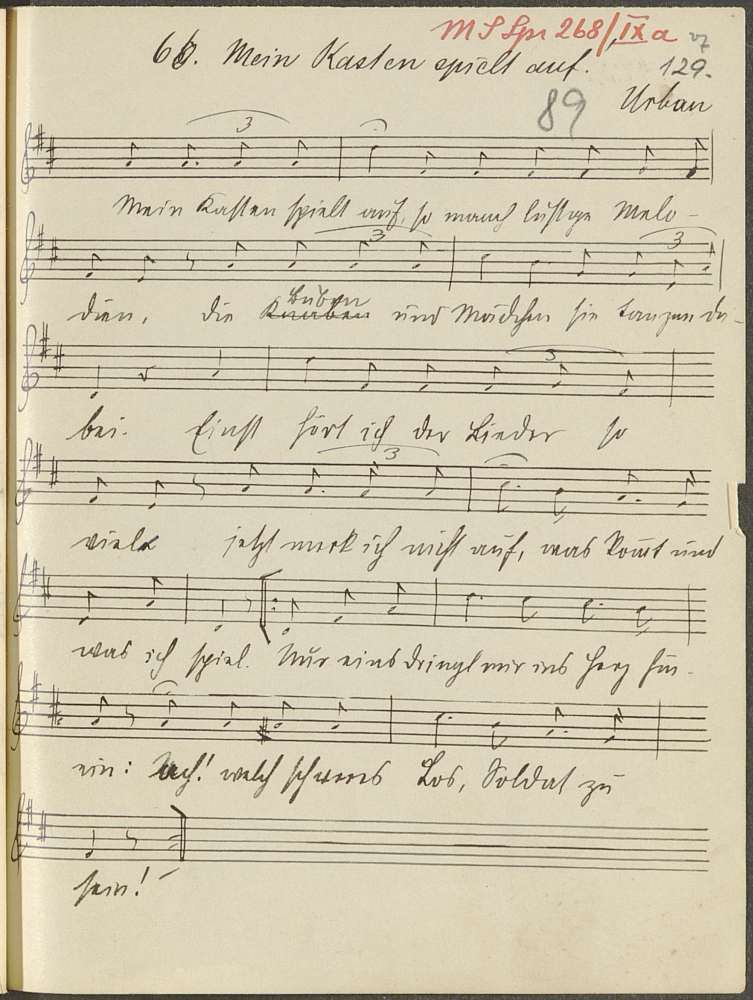 M S Spr 268/IXa
66. Mein Kasten spielt auf. 129.
89 Urban
3
Mein Kasten spielt auf, so manch lustge Melo-
3 3
dien, die Buben
Knaben und Mädchen sie tanzen da-
3
bei. Einst hört ich der Lieder so
3
viele jetzt merk ich nicht auf, was komt und
was ich spiel. Nur eins dringt mir ins Herz hin-
ein: Ach! welch schweres Los, Soldat zu
sein!